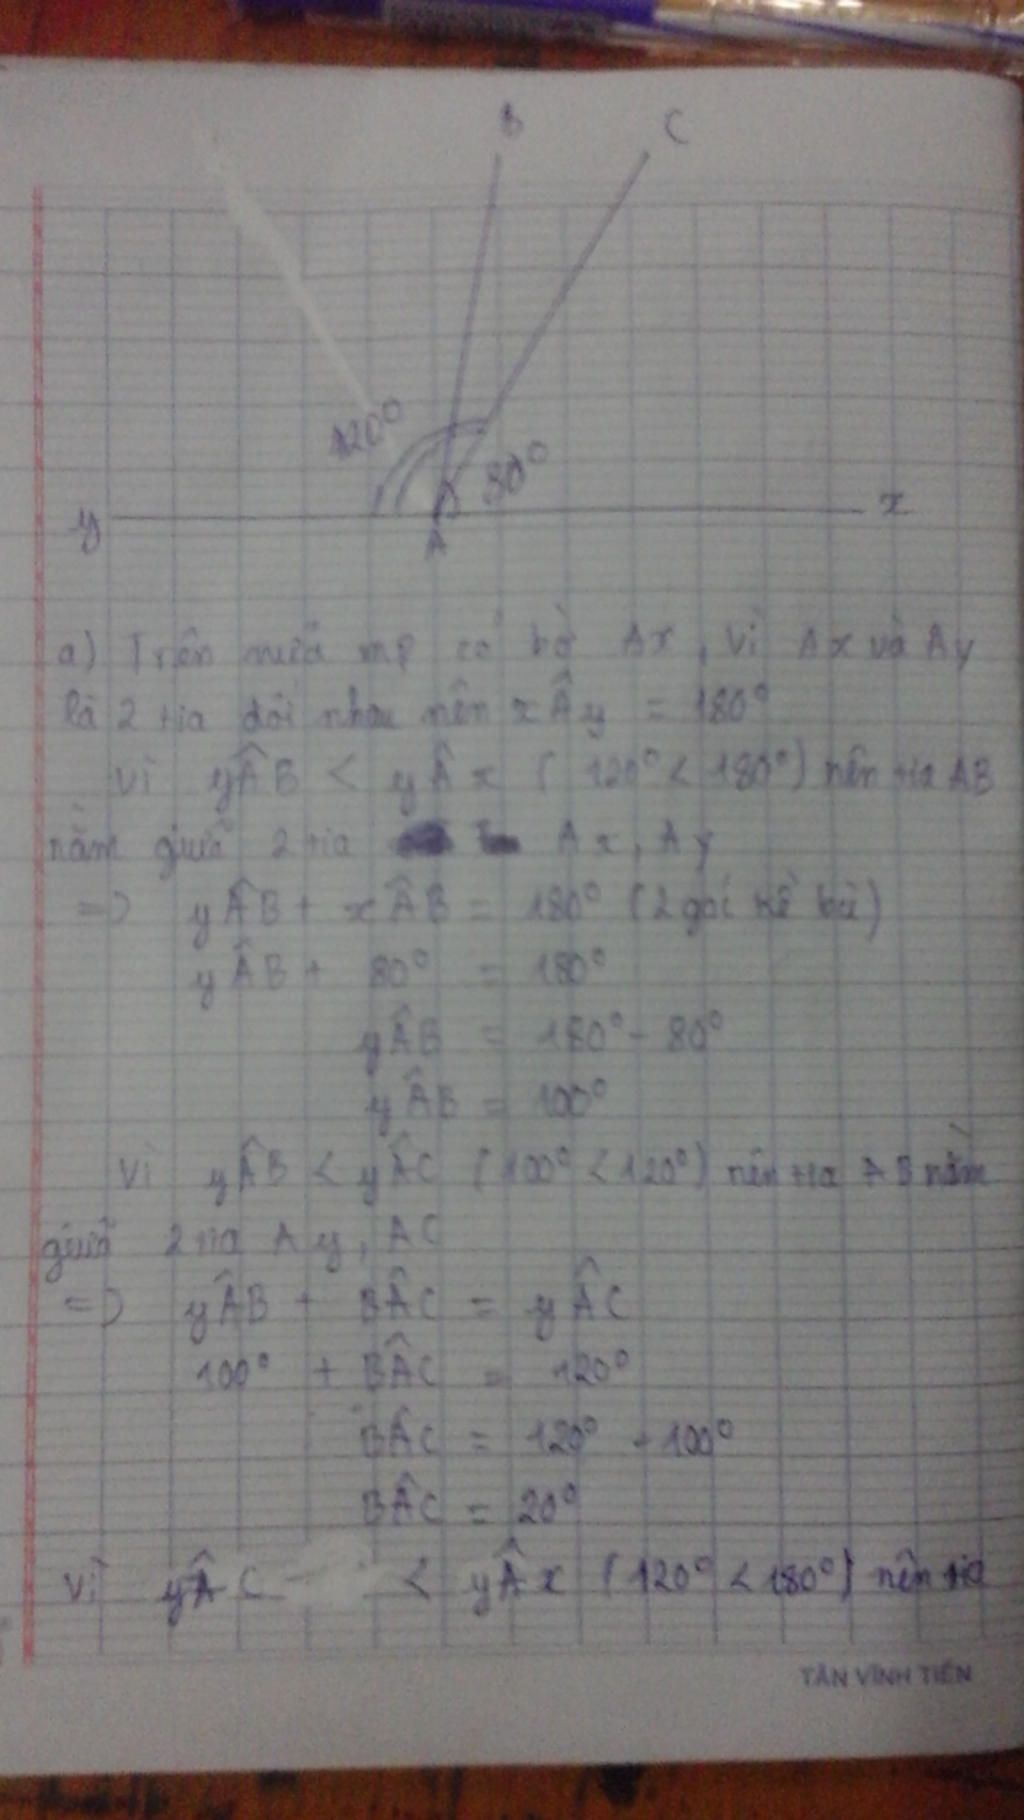 B
C
120°
80°
y
x
A
a) Trên nửa mp có bờ Ax, vì Ax và Ay
là 2 tia đối nhau nên xÂy = 180°
Vì yÂB < yÂx (120° < 180°) nên tia AB
nằm giữa 2 tia Ax, Ay
=> yÂB + xÂB = 180° (2 góc kề bù)
yÂB + 80° = 180°
yÂB = 180° - 80°
yÂB = 100°
Vì yÂB < yÂC (100° < 120°) nên tia AB nằm
giữa 2 tia Ay, AC
=> yÂB + BÂC = yÂC
100° + BÂC = 120°
BÂC = 120° - 100°
BÂC = 20°
Vì yÂC < yÂx (120° < 180°) nên tia
TÂN VĨNH TIẾN